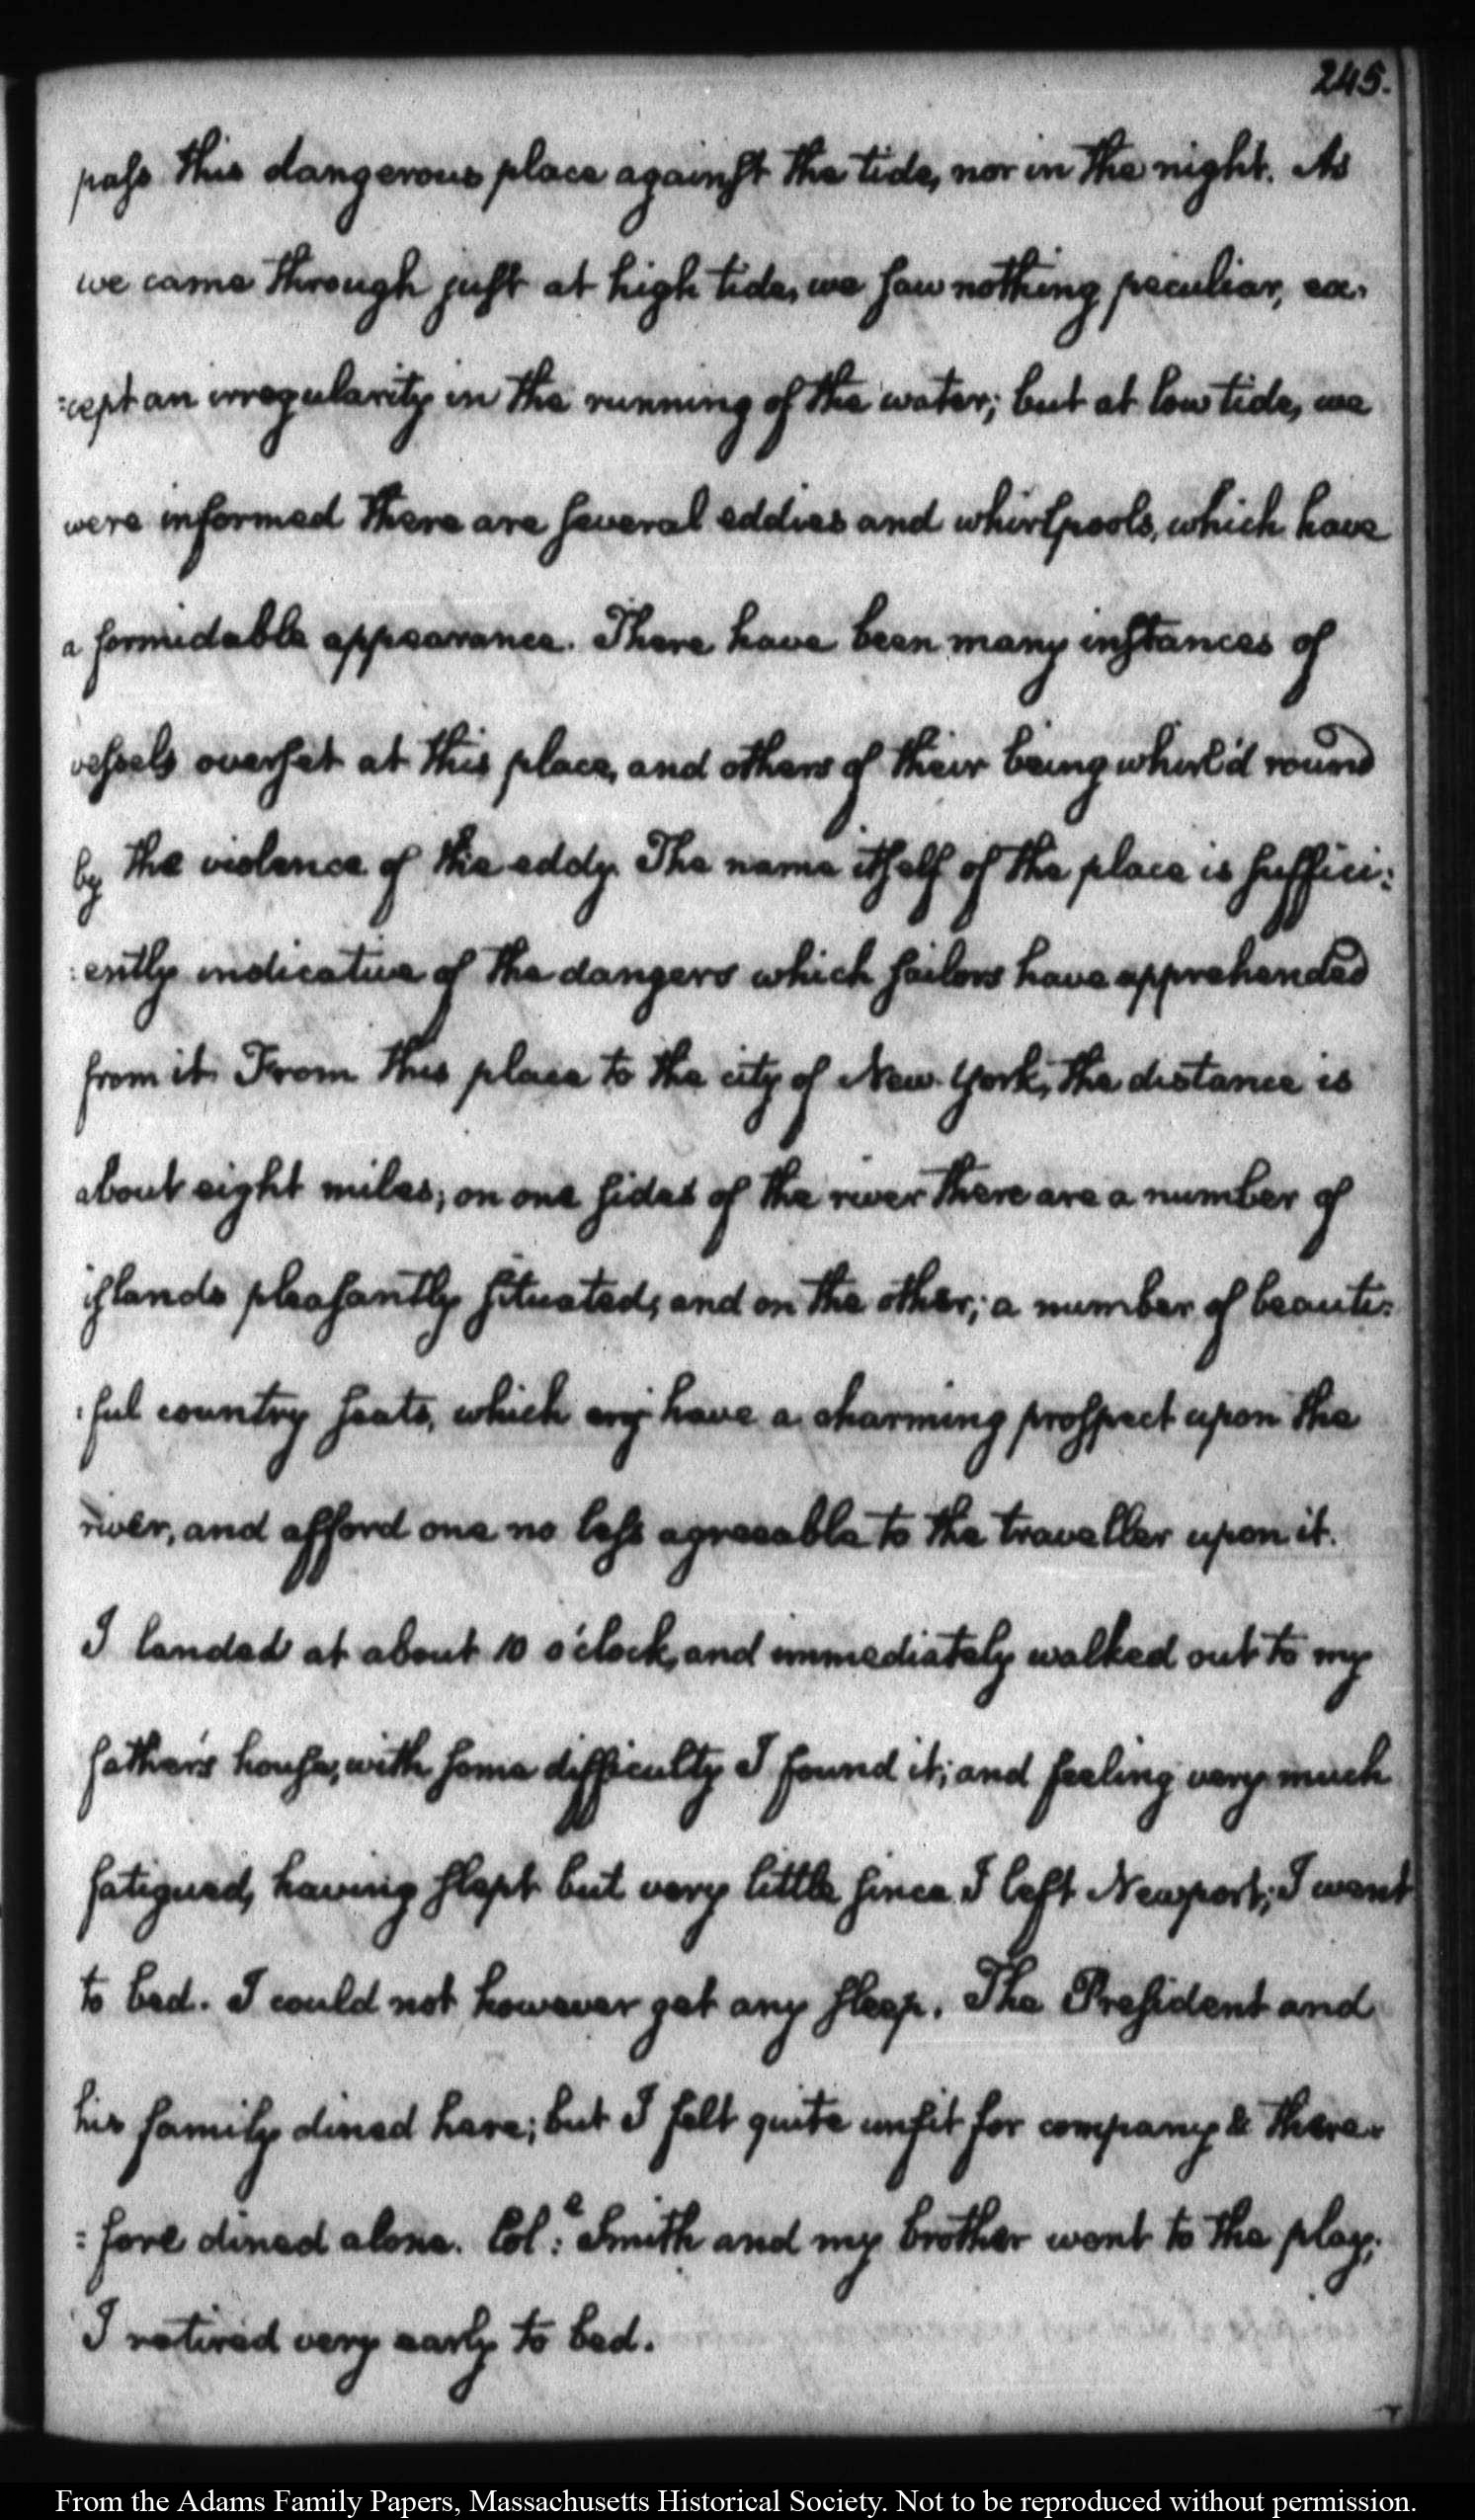 245.
pass this dangerous place against the tide, nor in the night. As
we came through just at high tide, we saw nothing peculiar, ex-
:cept an irregularity in the running of the water; but at low tide, we
were informed there are several eddies and whirlpools, which have
a formidable appearance. There have been many instances of
vessels overset at this place, and others of their being whirl'd round
by the violence of the eddy. The name itself of the place is suffici:
:ently indicative of the dangers which sailors have apprehended
from it. From this place to the city of New-York, the distance is
about eight miles; on one sides of the river there are a number of
islands pleasantly situated; and on the other; a number of beauti:
:ful country seats, which have a charming prospect upon the
river, and afford one no less agreeable to the traveller upon it.
I landed at about 10 o'clock, and immediately walked out to my
father's house; with some difficulty I found it; and feeling very much
fatigued, having slept but very little since I left Newport; I went
to bed. I could not however get any sleep. The President and
his family dined here; but I felt quite unfit for company & there-
:fore dined alone. Col:e Smith and my brother went to the play;
I retired very early to bed.
From the Adams Family Papers, Massachusetts Historical Society. Not to be reproduced without permission.